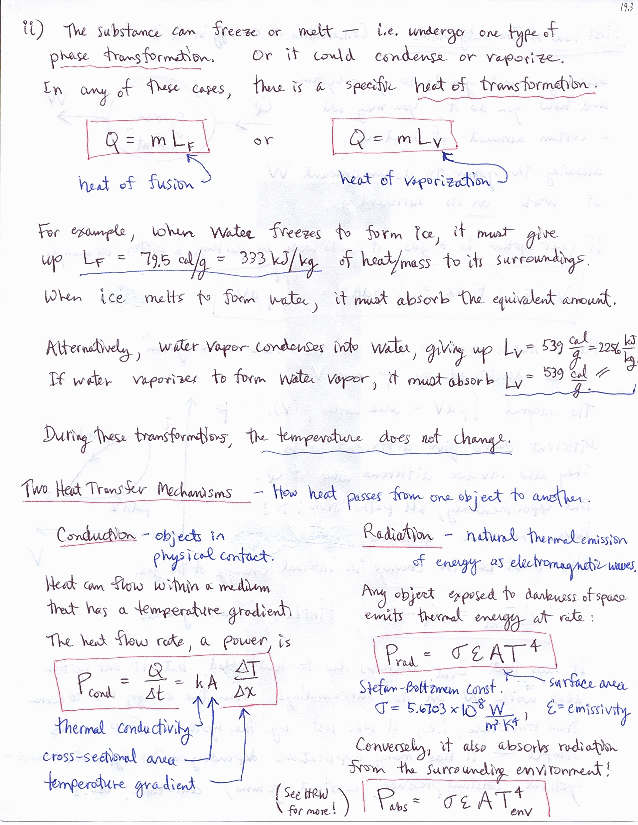 19.3
ii) The substance can freeze or melt — i.e. undergo one type of
phase transformation. Or it could condense or vaporize.
In any of these cases, there is a specific heat of transformation.
Q = m L_F or Q = m L_V
heat of fusion heat of vaporization
For example, when water freezes to form ice, it must give
up L_F = 79.5 cal/g = 333 kJ/kg of heat/mass to its surroundings.
When ice melts to form water, it must absorb the equivalent amount.
Alternatively, water vapor condenses into water, giving up L_V = 539 cal/g = 2256 kJ/kg.
If water vaporizes to form water vapor, it must absorb L_V = 539 cal/g. 〃
During these transformations, the temperature does not change.
Two Heat Transfer Mechanisms - How heat passes from one object to another.
Conduction - objects in
physical contact.
Heat can flow within a medium
that has a temperature gradient.
The heat flow rate, a power, is
P_cond = Q/Δt = kA ΔT/Δx
thermal conductivity
cross-sectional area
temperature gradient
Radiation - natural thermal emission
of energy as electromagnetic waves.
Any object exposed to darkness of space
emits thermal energy at rate:
P_rad = σεAT⁴
surface area
Stefan-Boltzmann Const.
σ = 5.6703 × 10⁻⁸ W/m²K⁴, ε = emissivity
Conversely, it also absorbs radiation
from the surrounding environment!
(See HRW
for more!)
P_abs = σεAT⁴_env